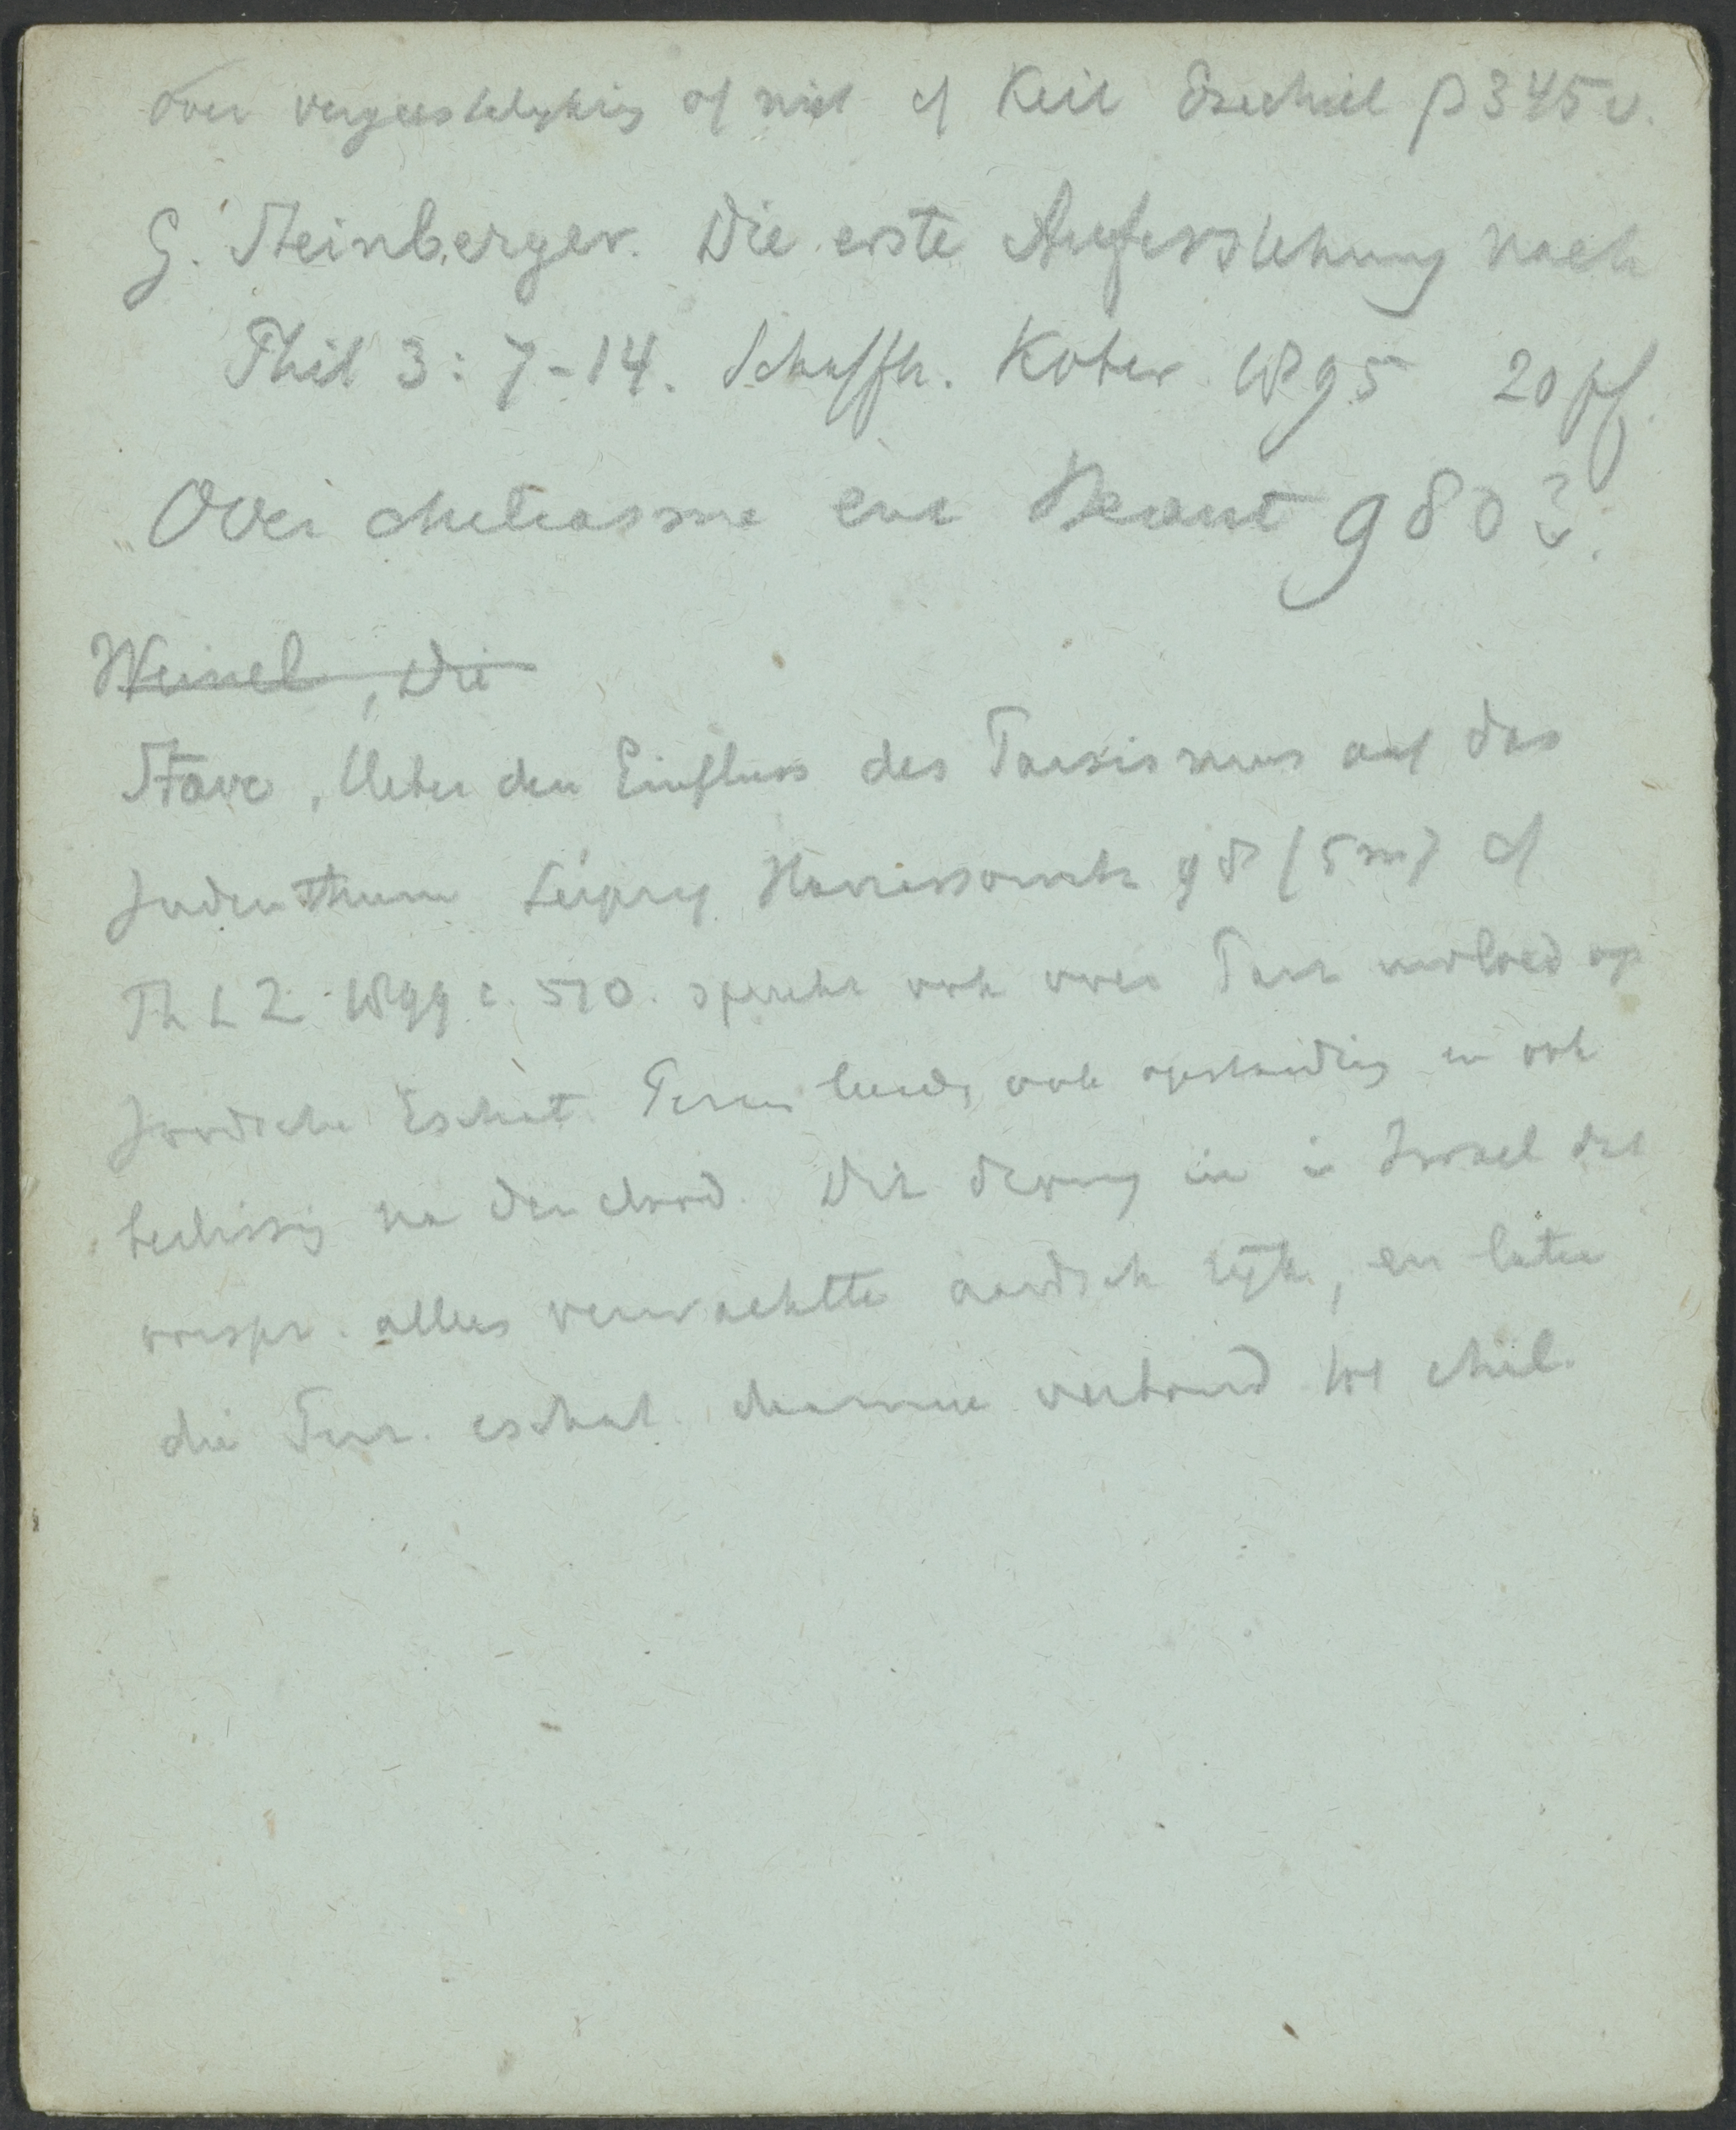 over vergeestelyking of niet cf Keil Ezechiel p 345 v.
G. Steinberger. Die erste Auferstehung nach
Phil 3: 7-14. Schaffh. Kober 1895 20 pf.
Over Chiliasme enz
Weinel, Die
Stave, Ueber den Einfluss des Parsismus auf das
Judenthum Leipzig Harrassowitz 98 (5 m) cf
Th L Z 1899 c. 510. spreekt ook over Pers invloed op
Joodsche Eschat. Perzen leerden ook opstanding en ook
beslissing na den dood. Dit drong in in Israel dat
oorspr. alleen verwachtte aardsch rijk, en later
die Perz. eschat. daarmee verbond tot Chil.